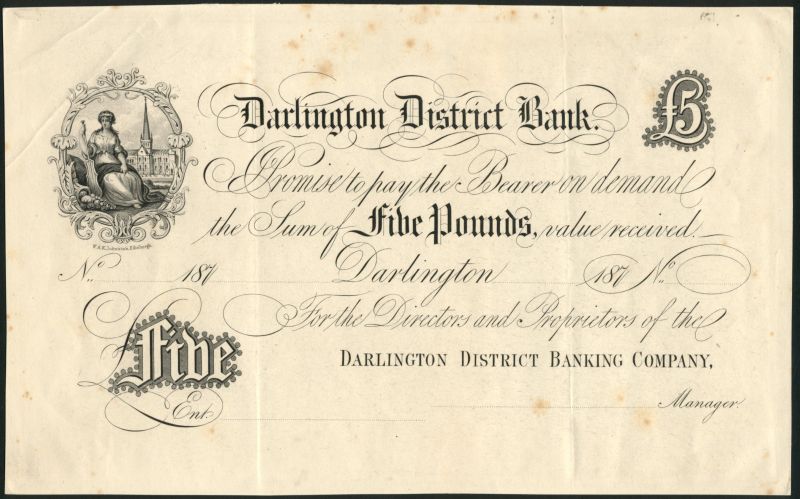 Darlington District Bank.
£5
Promise to pay the Bearer on demand
the Sum of Five Pounds, value received
W. & A.K. Johnston, Edinburgh.
No. 187
Darlington 187 No.
For the Directors and Proprietors of the
£Five
DARLINGTON DISTRICT BANKING COMPANY,
Ent.
Manager.